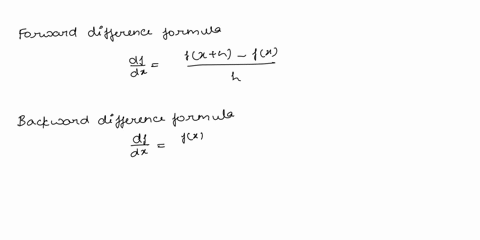 Forward difference formula
df/dx = f(x+h) - f(x) / h
Backward difference formula
df/dx = f(x)